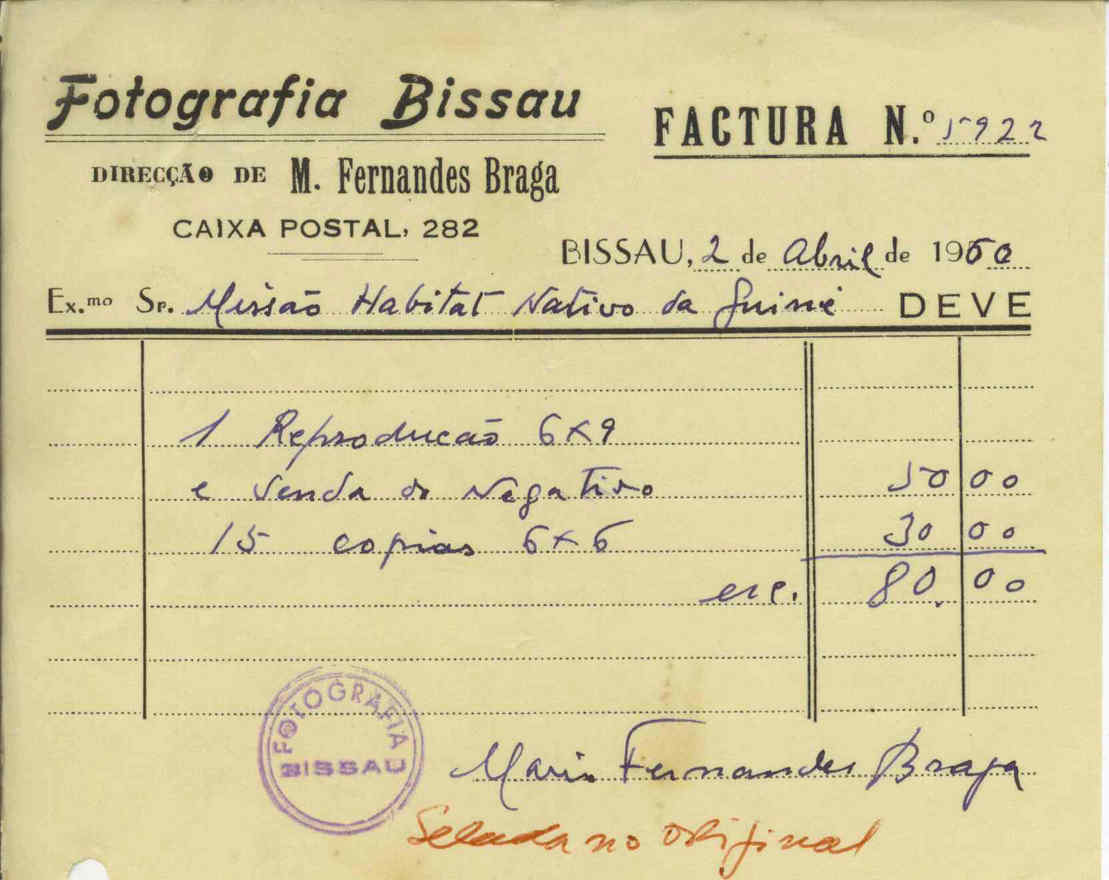 Fotografia Bissau
FACTURA N.º 5922
DIRECÇÃO DE M. Fernandes Braga
CAIXA POSTAL, 282
BISSAU, 2 de Abril de 1960
Ex.mo Sr. Missão Habitat Nativo da Guiné DEVE
1 Reprodução 6x9
e venda do Negativo 50 00
15 copias 6x6 30 00
esc. 80. 00
FOTOGRAFIA
BISSAU
Mario Fernandes Braga
Selada no Original